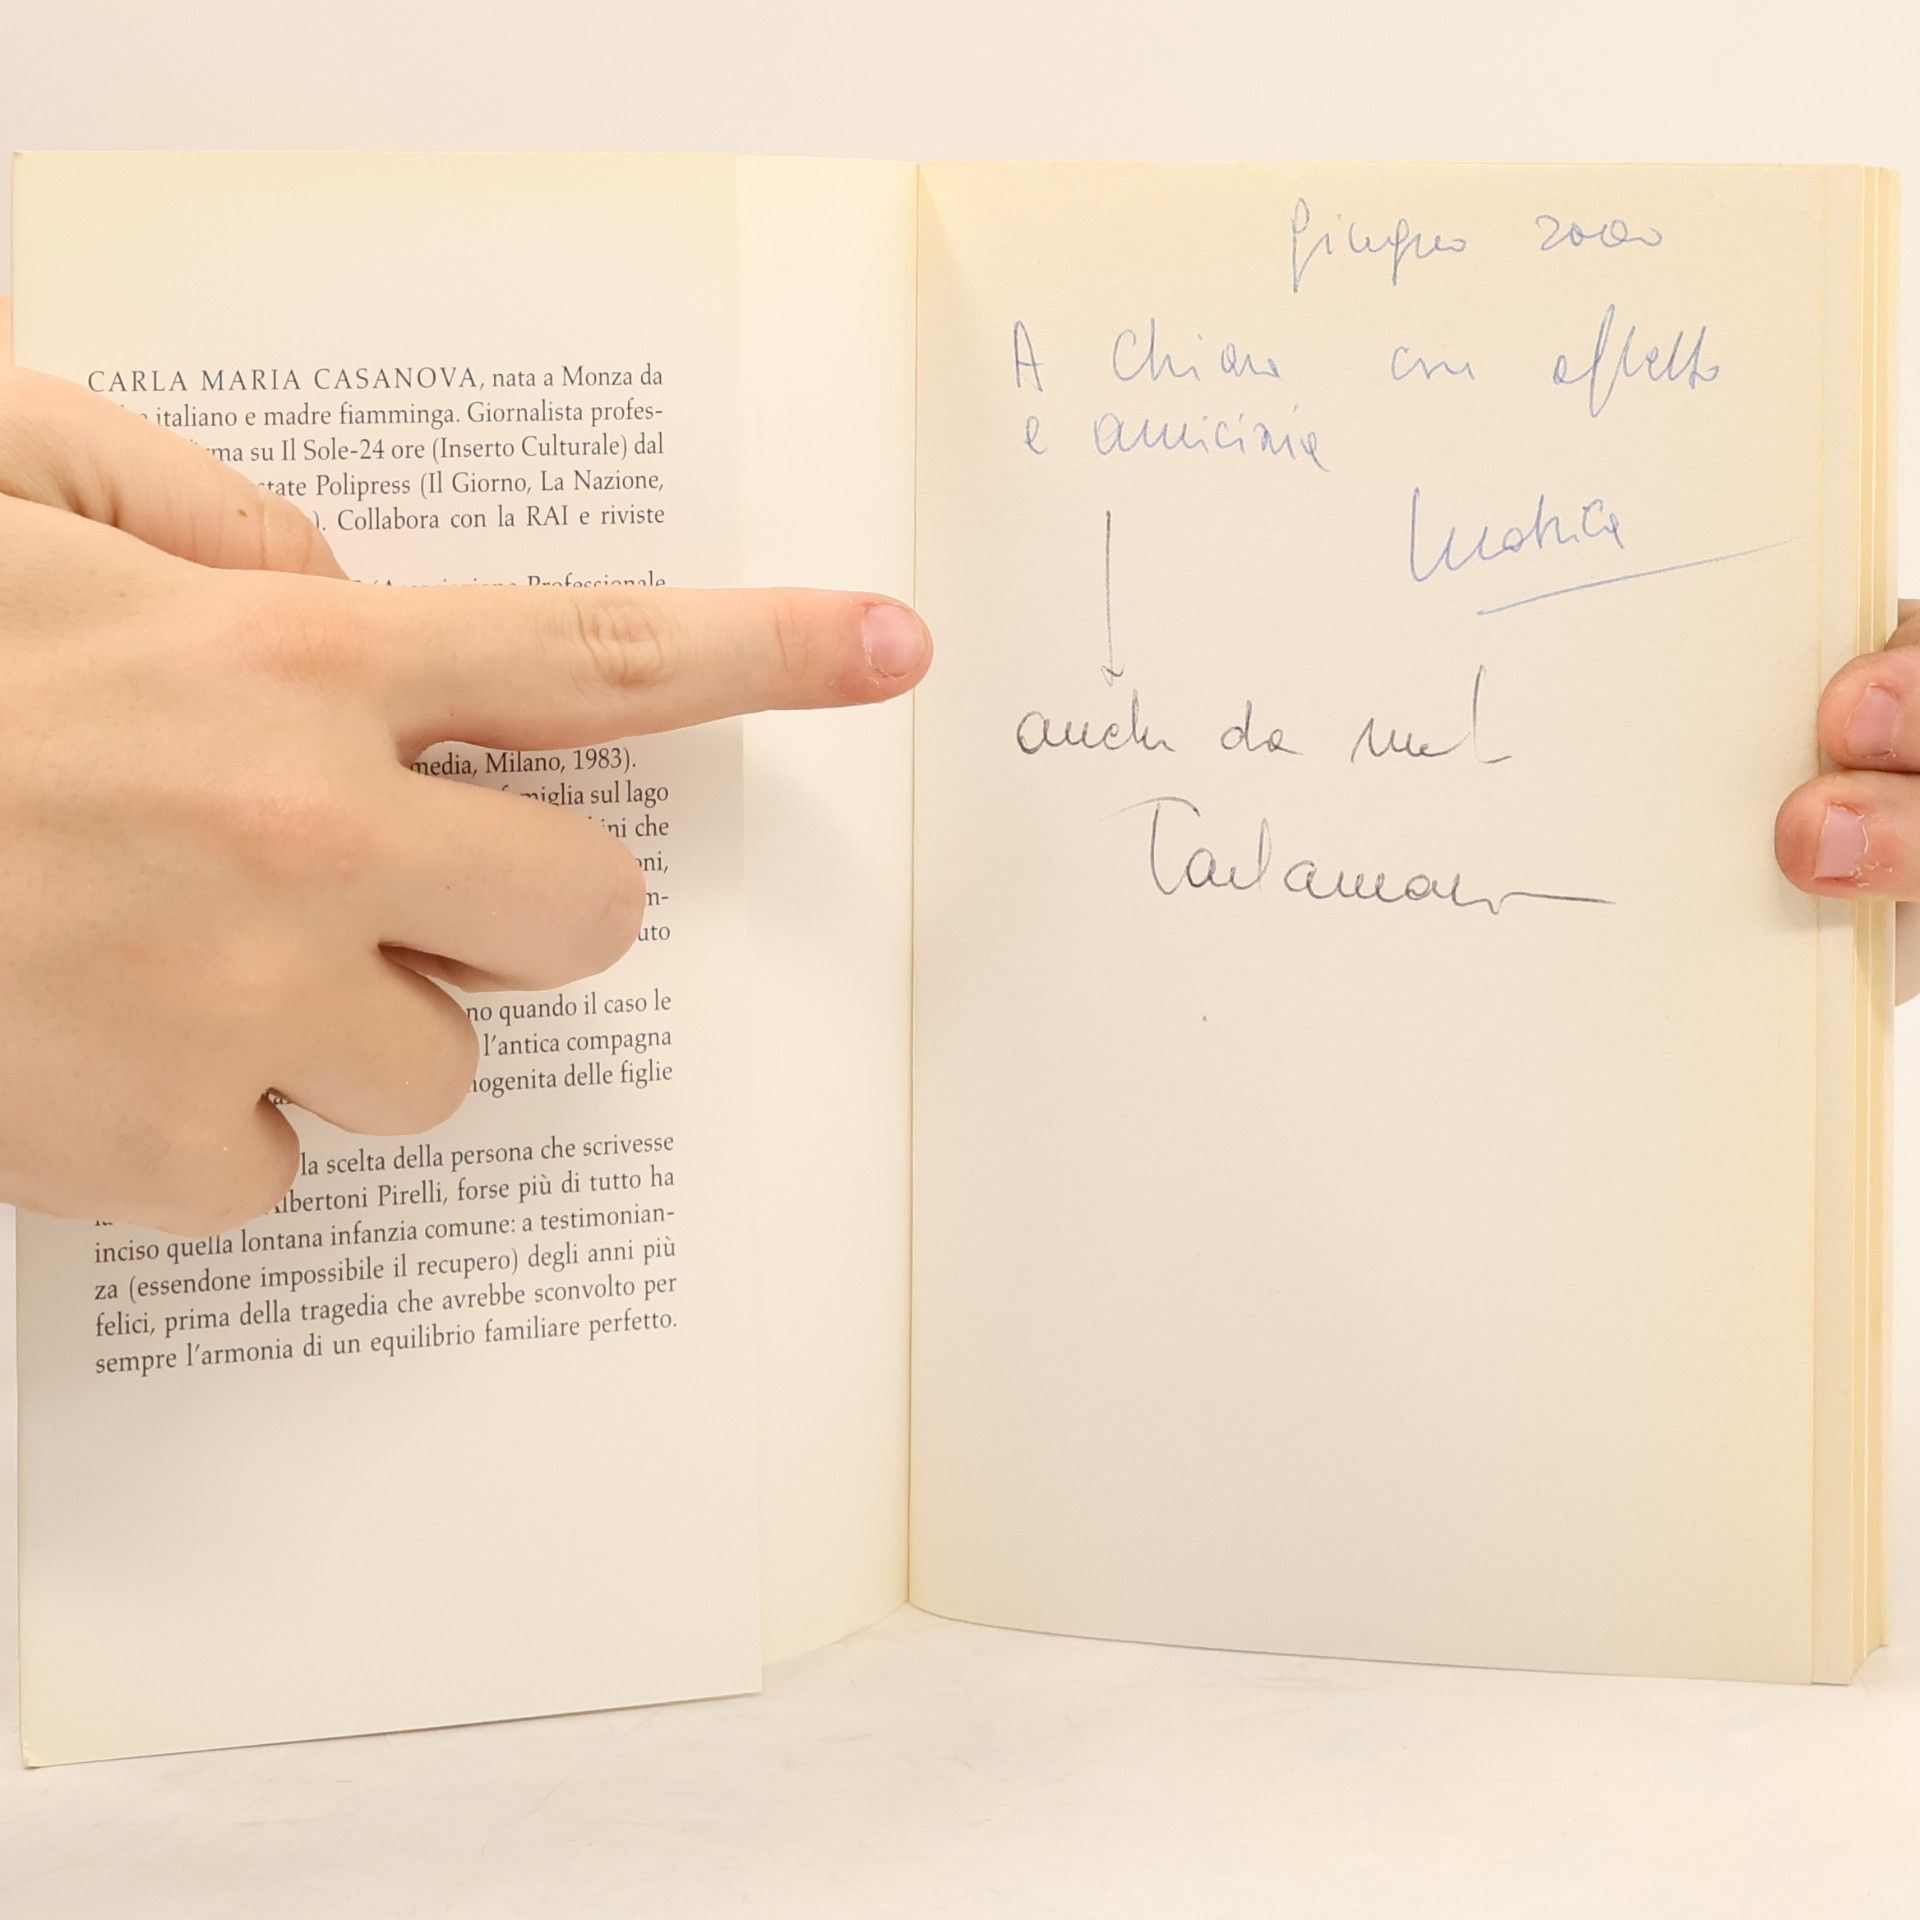 CARLA MARIA CASANOVA, nata a Monza da
italiano e madre fiamminga. Giornalista profes-
su Il Sole-24 ore (Inserto Culturale) dal
Polipress (Il Giorno, La Nazione,
). Collabora con la RAI e riviste
Professionale
media, Milano, 1983).
sul lago
che
oni,
m-
uto
no quando il caso le
l'antica compagna
nogenita delle figlie
la scelta della persona che scrivesse
Albertoni Pirelli, forse più di tutto ha
inciso quella lontana infanzia comune: a testimonian-
za (essendone impossibile il recupero) degli anni più
felici, prima della tragedia che avrebbe sconvolto per
sempre l'armonia di un equilibrio familiare perfetto.
giugno 2000
A Chiara con affetto
e amicizia
anche da me